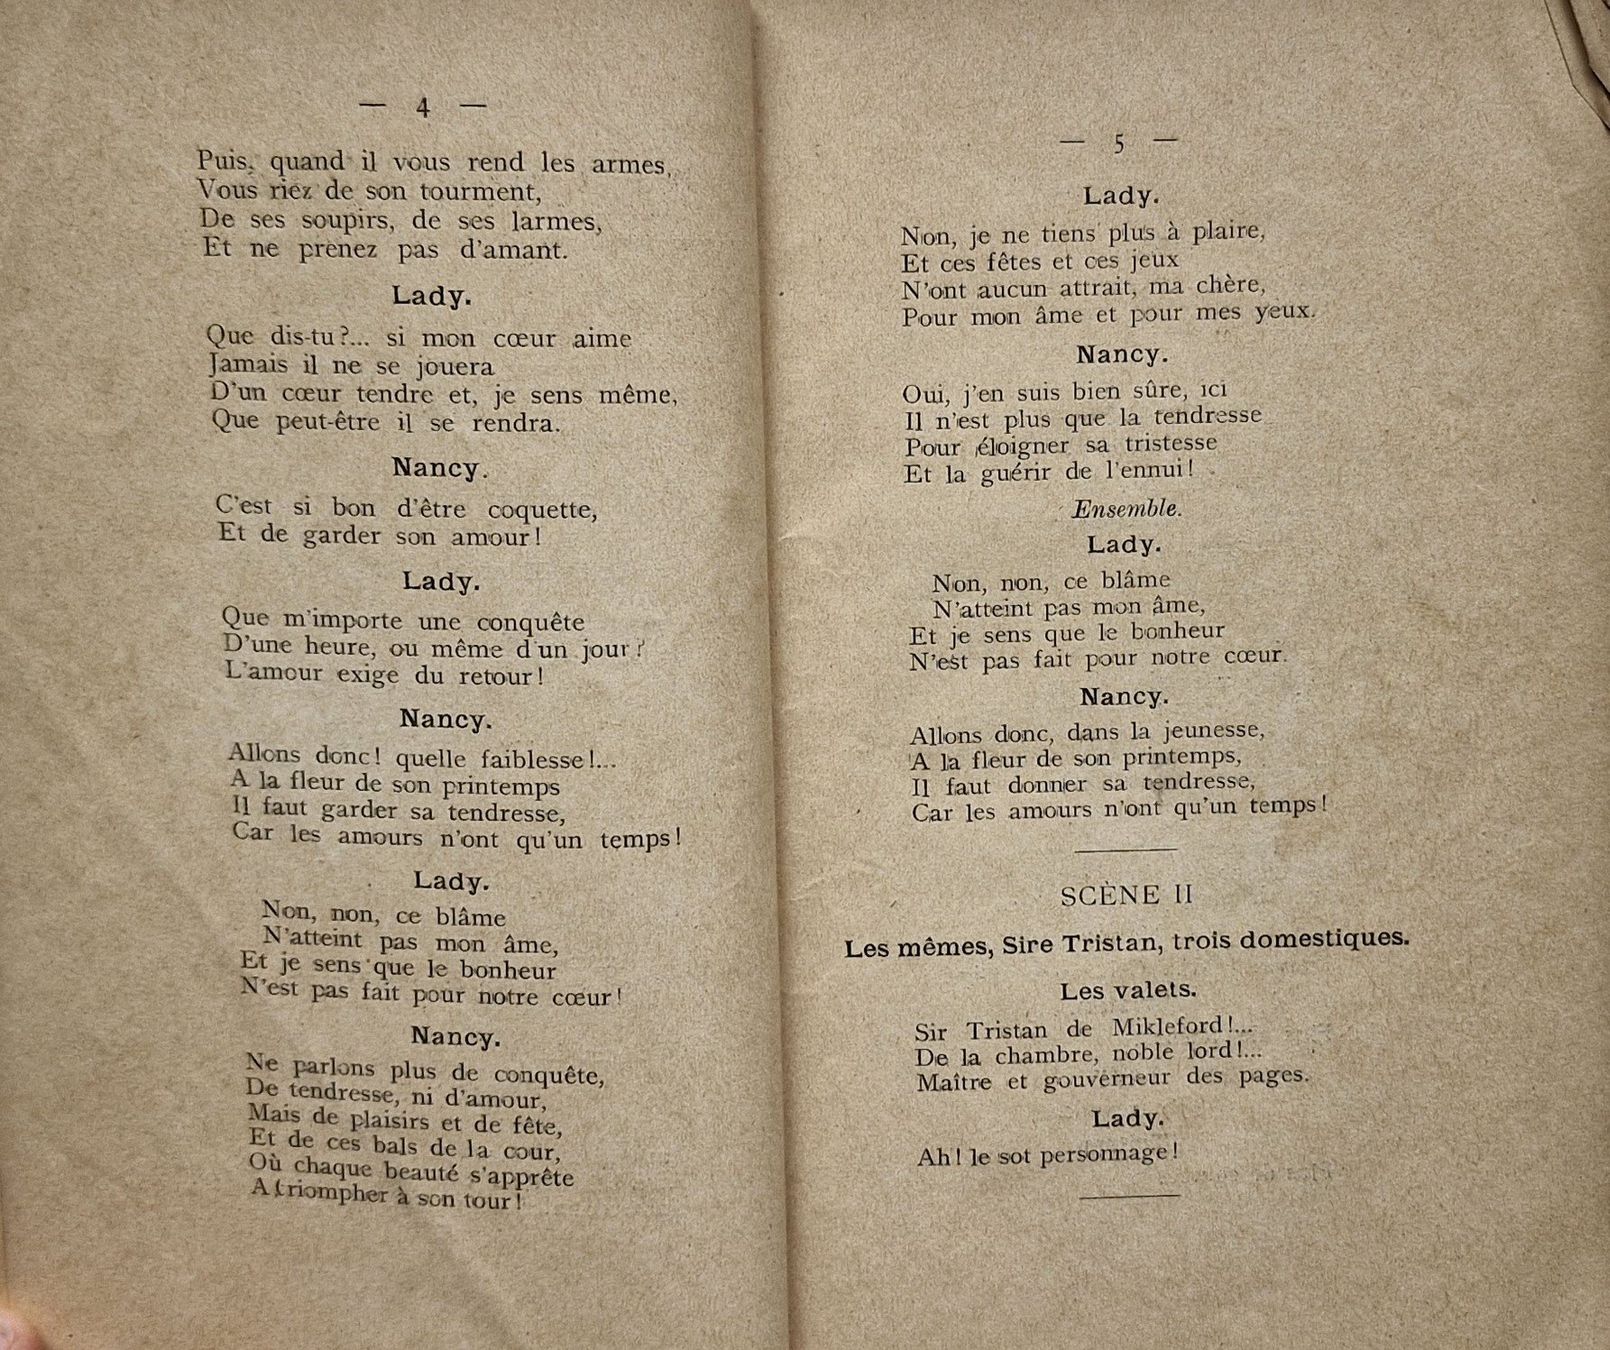 — 4 —
Puis, quand il vous rend les armes,
Vous riez de son tourment,
De ses soupirs, de ses larmes,
Et ne prenez pas d'amant.
Lady.
Que dis-tu?... si mon cœur aime
Jamais il ne se jouera
D'un cœur tendre et, je sens même,
Que peut-être il se rendra.
Nancy.
C'est si bon d'être coquette,
Et de garder son amour!
Lady.
Que m'importe une conquête
D'une heure, ou même d'un jour?
L'amour exige du retour!
Nancy.
Allons donc! quelle faiblesse!...
A la fleur de son printemps
Il faut garder sa tendresse,
Car les amours n'ont qu'un temps!
Lady.
Non, non, ce blâme
N'atteint pas mon âme,
Et je sens que le bonheur
N'est pas fait pour notre cœur!
Nancy.
Ne parlons plus de conquête,
De tendresse, ni d'amour,
Mais de plaisirs et de fête,
Et de ces bals de la cour,
Où chaque beauté s'apprête
A triompher à son tour!
— 5 —
Lady.
Non, je ne tiens plus à plaire,
Et ces fêtes et ces jeux
N'ont aucun attrait, ma chère,
Pour mon âme et pour mes yeux.
Nancy.
Oui, j'en suis bien sûre, ici
Il n'est plus que la tendresse
Pour éloigner sa tristesse
Et la guérir de l'ennui!
Ensemble.
Lady.
Non, non, ce blâme
N'atteint pas mon âme,
Et je sens que le bonheur
N'est pas fait pour notre cœur.
Nancy.
Allons donc, dans la jeunesse,
A la fleur de son printemps,
Il faut donner sa tendresse,
Car les amours n'ont qu'un temps!
SCÈNE II
Les mêmes, Sire Tristan, trois domestiques.
Les valets.
Sir Tristan de Mikleford!...
De la chambre, noble lord!...
Maître et gouverneur des pages.
Lady.
Ah! le sot personnage!